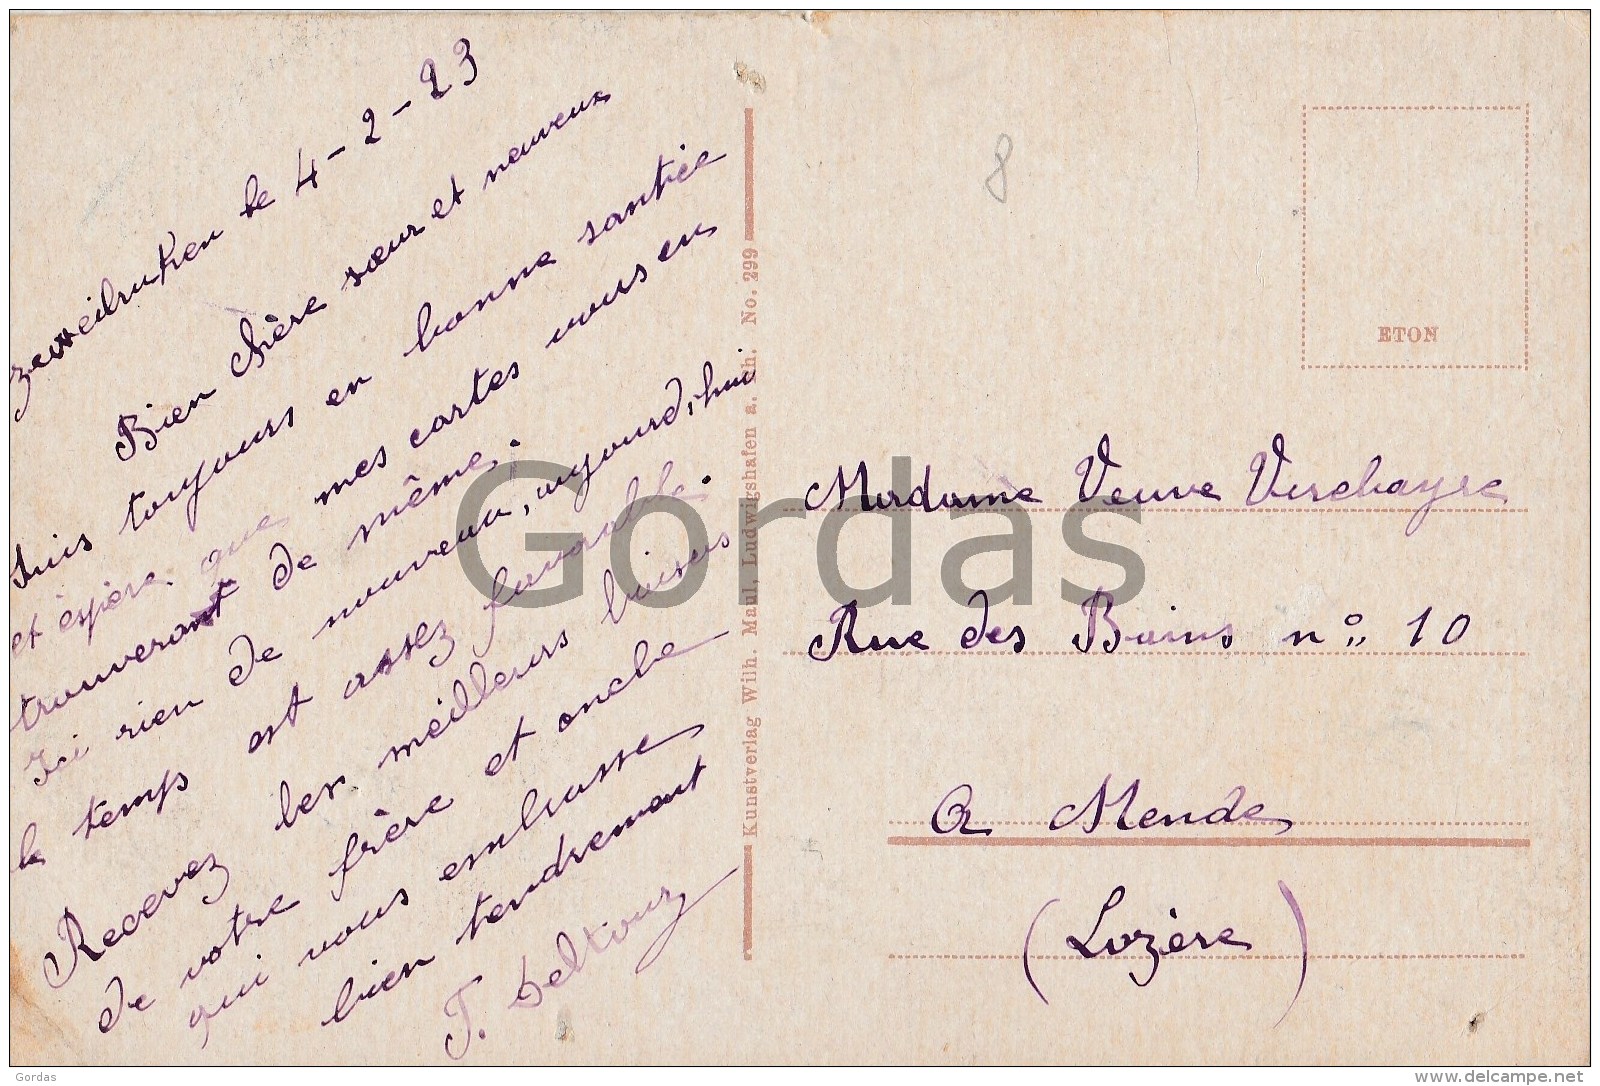 Zeweibruken le 4-2-23
Bien Chère sœur et neuveux
Suis toujours en bonne santée
et éspère que mes cartes vous en
trouveront de même.
Ici rien de nouveau, aujourd,hui
le temps est assez favorable.
Recevez les meilleurs baisers
de votre frère et oncle
qui vous embrasse
bien tendrement
J. Deltour
Kunstverlag Wilh. Maul, Ludwigshafen a. Rh. No. 299
8
ETON
Madame Veuve Verchayre
Rue des Bains n° 10
a Mende
(Lozère)
Gordas
Gordas
www.delcampe.net